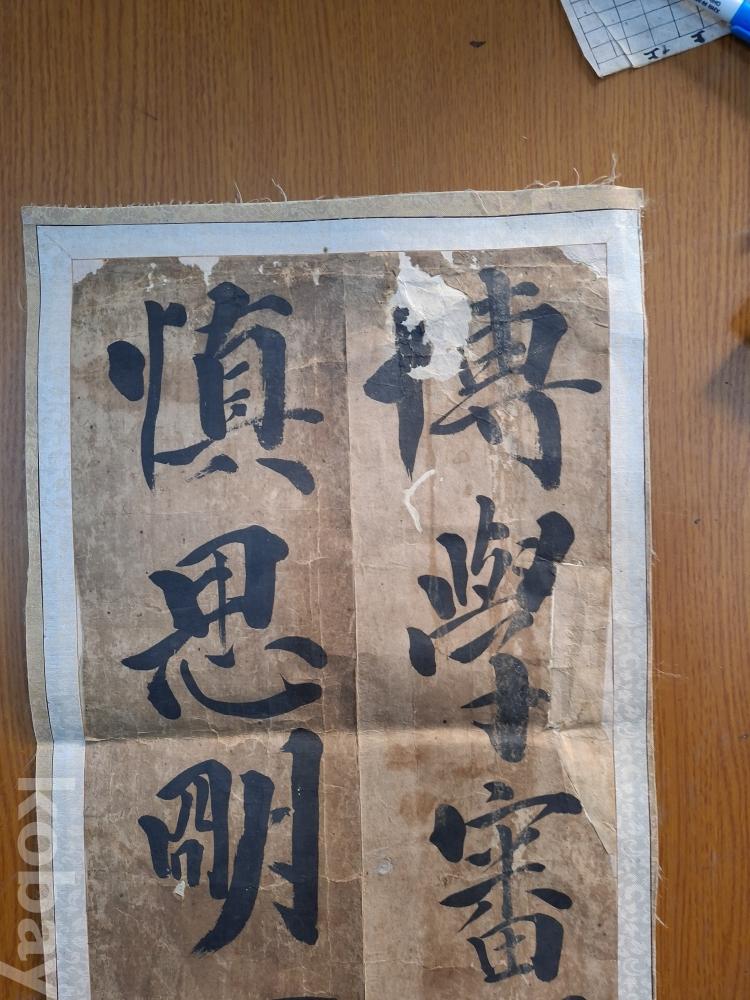 博學審
慎思明
kobay